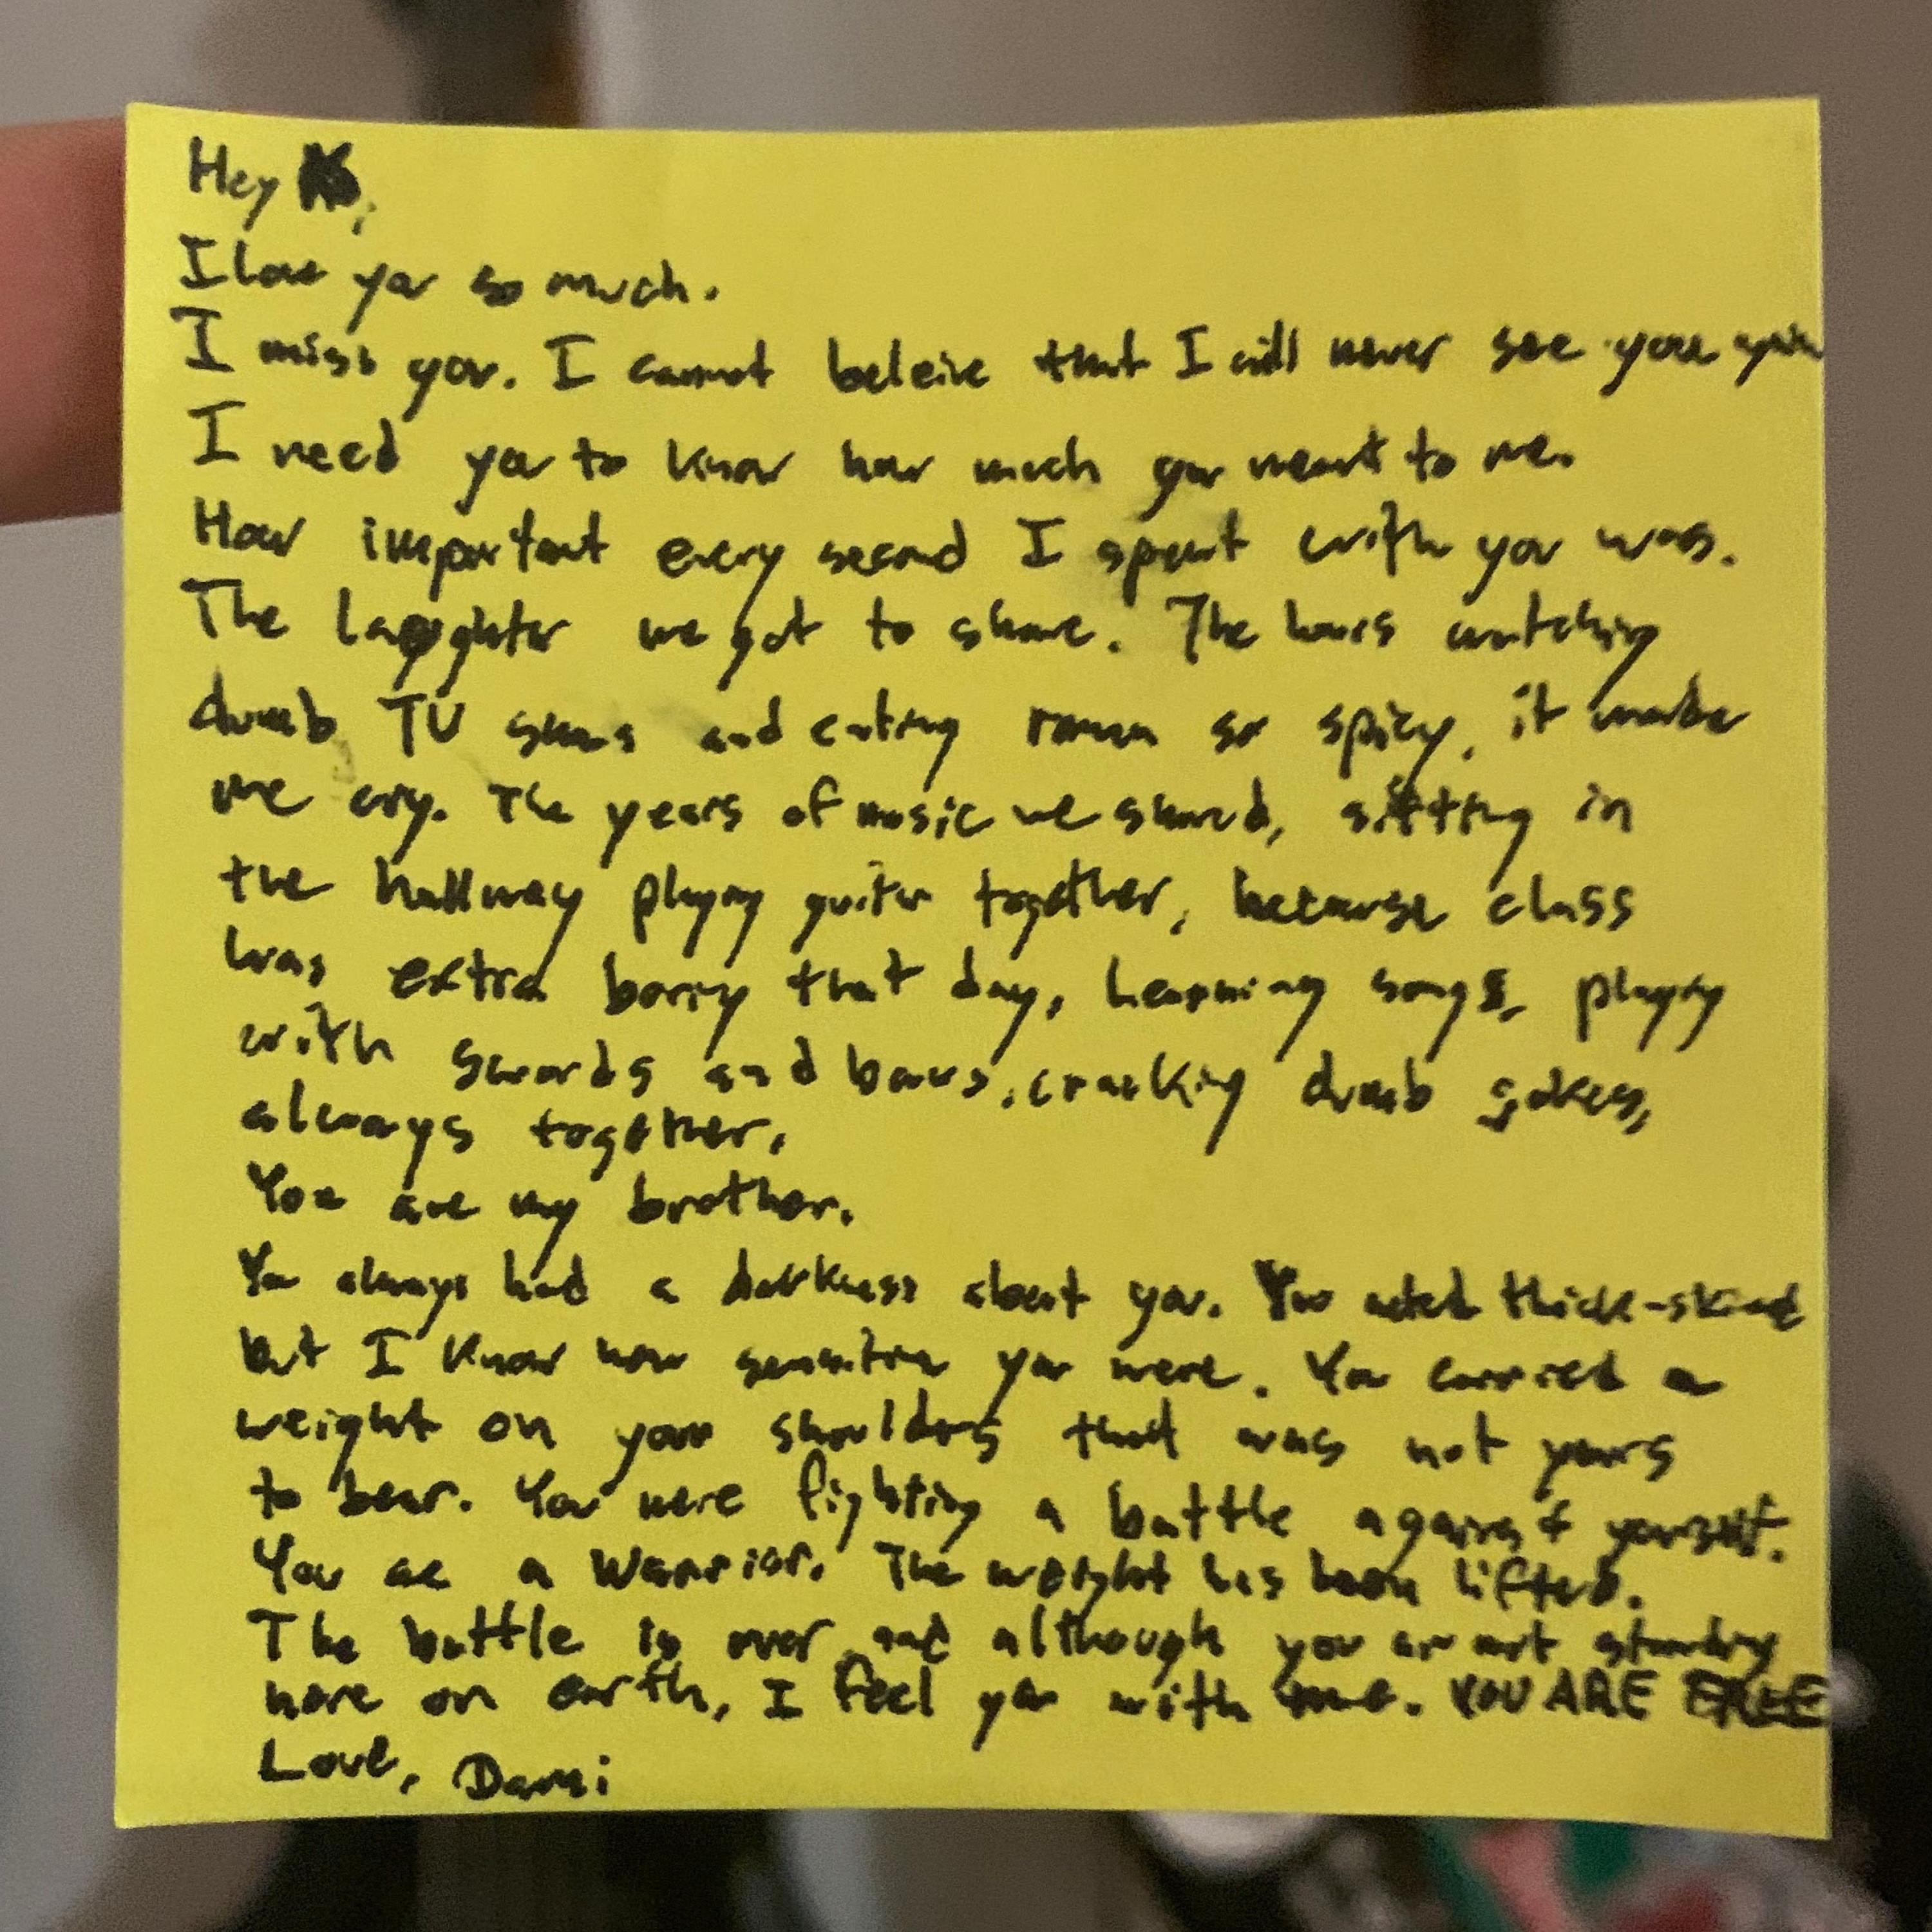 Hey
I love you so much.
I miss you. I cannot beleive that I will never see you
I need you to know how much you meant to me.
How important every second I spent with you was.
The laughter we got to share. The hours watching
dumb TV shows and eating ramen so spicy, it made
me cry. The years of music we shared, sitting in
the hallway playing guitar together, because class
was extra boring that day, learning songs, playing
with swords and bows, cracking dumb jokes,
always together.
You are my brother.
You always had a darkness about you. You acted thick-skined
but I know how sensitive you were. You carried a
weight on your shoulders that was not yours
to bear. You were fighting a battle against yourself.
You are a warrior. The weight has been lifted.
The battle is over and although you are not standing
here on earth, I feel you with me. YOU ARE FREE
Love,